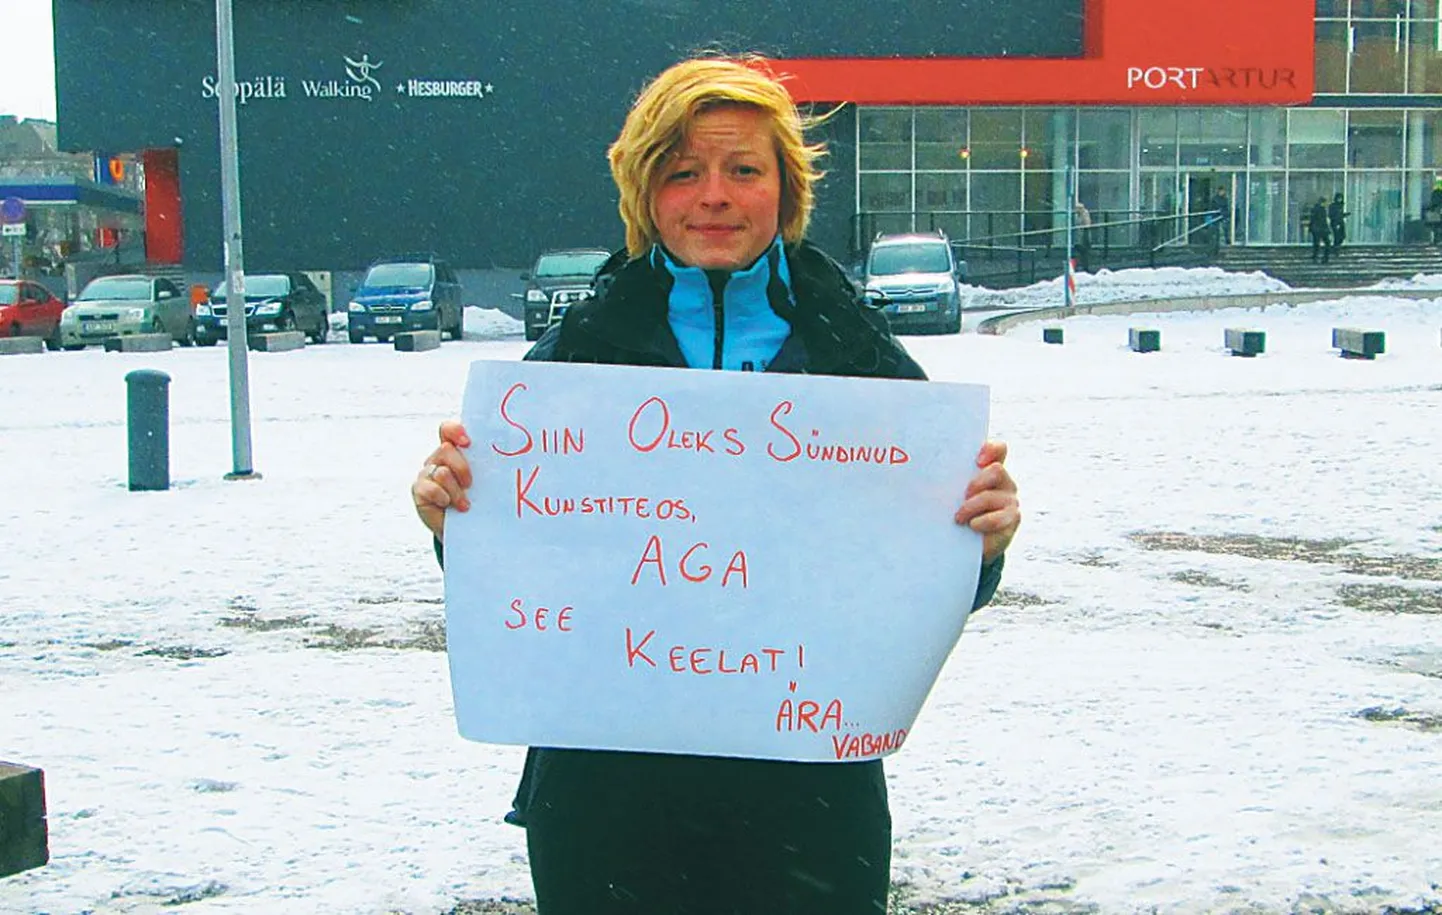 Seppälä Walking ★HESBURGER★
PORTARTUR
SIIN OLEKS SÜNDINUD
KUNSTITEOS,
AGA
SEE
KEELATI!
ÄRA...
VABAND